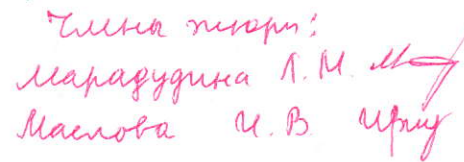 Члены жюри:
Марадудина Л. М.
Маслова И. В.